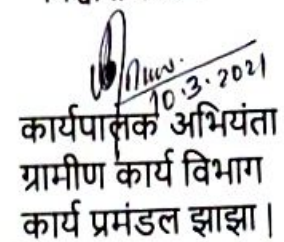 10.3.2021
कार्यपालक अभियंता
ग्रामीण कार्य विभाग
कार्य प्रमंडल झाझा|